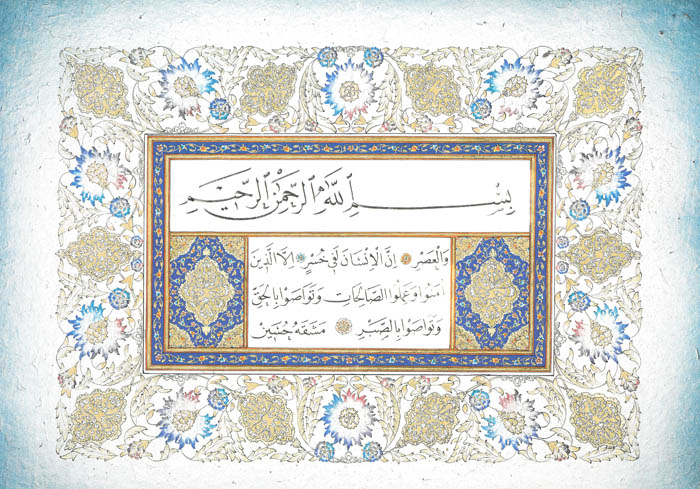 بِسْمِ اللّٰهِ الرَّحْمٰنِ الرَّحِيْمِ
وَالْعَصْرِ اِنَّ الْاِنْسَانَ لَفٖى خُسْرٍ اِلَّا الَّذٖينَ
اٰمَنُوا وَعَمِلُوا الصَّالِحَاتِ وَتَوَاصَوْا بِالْحَقِّ
وَتَوَاصَوْا بِالصَّبْرِ مَشَقَهُ حُسَيْن